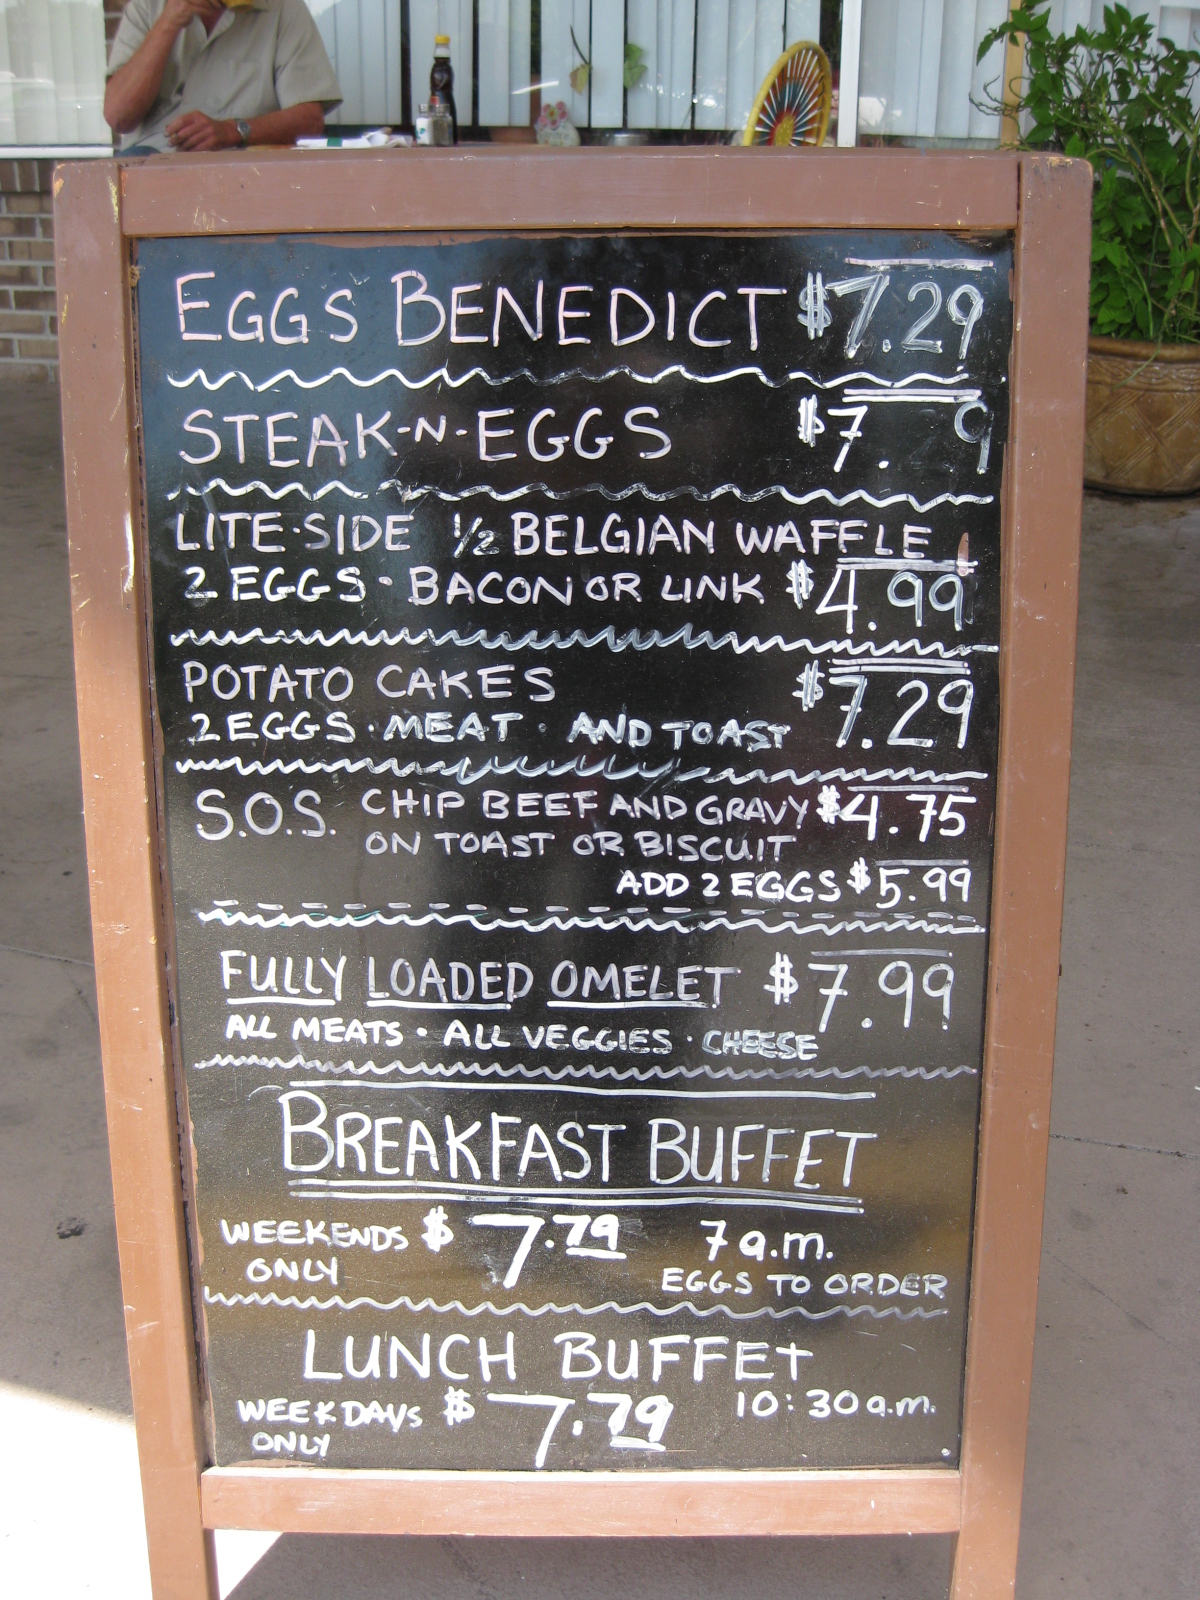 EGGS BENEDICT $7.29
STEAK-N-EGGS $7. 9
LITE-SIDE 1/2 BELGIAN WAFFLE
2 EGGS · BACON OR LINK $4.99
POTATO CAKES $7.29
2 EGGS · MEAT · AND TOAST
S.O.S. CHIP BEEF AND GRAVY $4.75
ON TOAST OR BISCUIT
ADD 2 EGGS $5.99
FULLY LOADED OMELET $7.99
ALL MEATS · ALL VEGGIES · CHEESE
BREAKFAST BUFFET
WEEKENDS $7.79 7 a.m.
ONLY EGGS TO ORDER
LUNCH BUFFET
WEEKDAYS $7.79 10:30 a.m.
ONLY